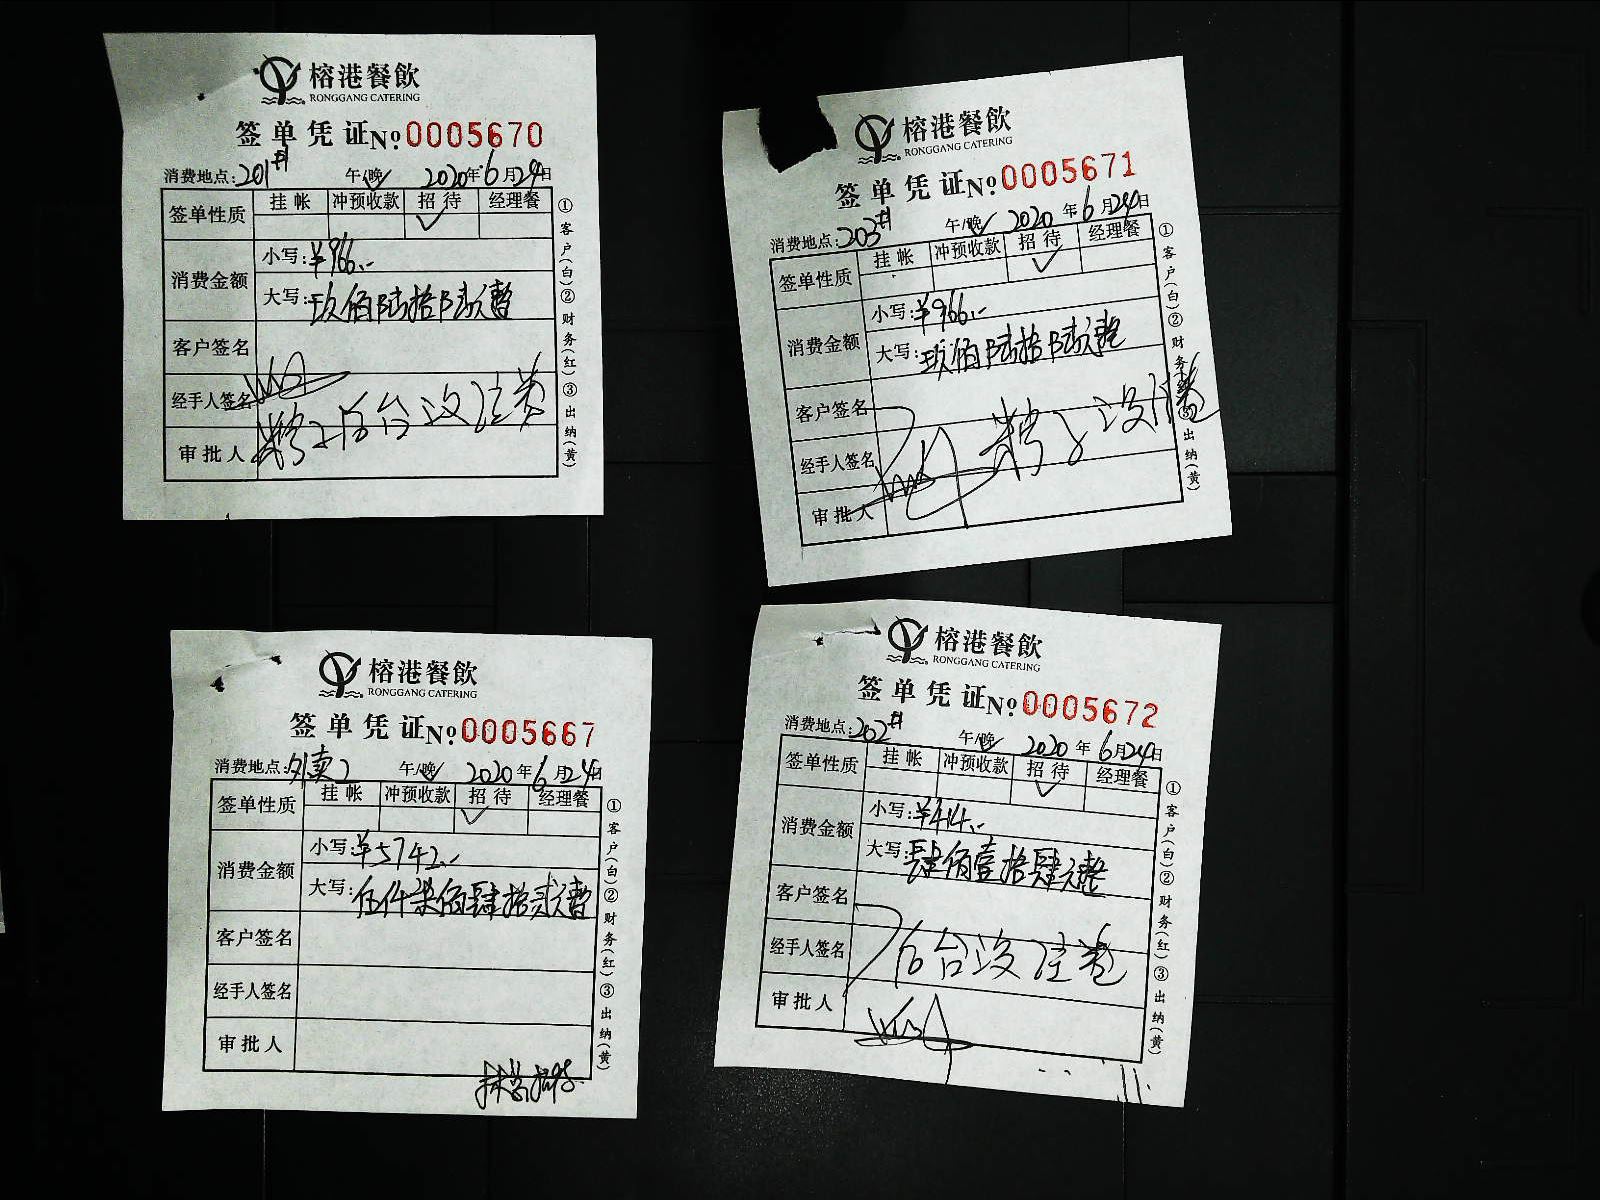 榕港餐飲
RONGGANG CATERING
签单凭证 №0005670
消费地点:201# 午/晚 2020年6月24日
签单性质 挂帐 冲预收款 招待 经理餐
消费金额
小写:¥966.-
大写:玖佰陆拾陆元整
客户签名
经手人签名
审批人
①客户(白)②财务(红)③出纳(黄)
榕港餐飲
RONGGANG CATERING
签单凭证 №0005671
消费地点:203# 午/晚 2020年6月24日
签单性质 挂帐 冲预收款 招待 经理餐
消费金额
小写:¥966.-
大写:玖佰陆拾陆元整
客户签名
经手人签名
审批人
①客户(白)②财务(红)③出纳(黄)
榕港餐飲
RONGGANG CATERING
签单凭证 №0005667
消费地点:外卖2 午/晚 2020年6月24日
签单性质 挂帐 冲预收款 招待 经理餐
消费金额
小写:¥5742.-
大写:伍仟柒佰肆拾贰元整
客户签名
经手人签名
审批人
①客户(白)②财务(红)③出纳(黄)
榕港餐飲
RONGGANG CATERING
签单凭证 №0005672
消费地点:202# 午/晚 2020年6月24日
签单性质 挂帐 冲预收款 招待 经理餐
消费金额
小写:¥414.-
大写:肆佰壹拾肆元整
客户签名
经手人签名
审批人
①客户(白)②财务(红)③出纳(黄)